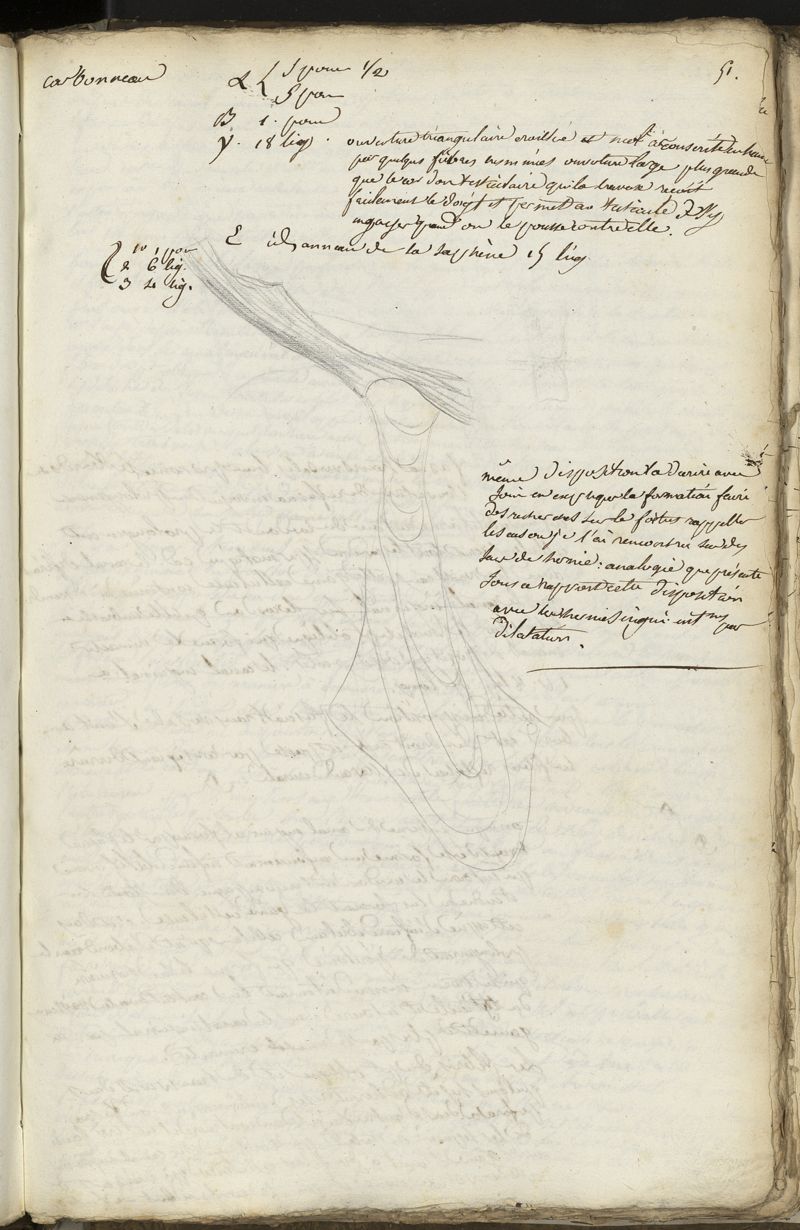 Carbonneau
51.
α { 5 pouces 1/2
5 pou
B 1. pouce
γ. 18 lig. ouverture triangulaire éraillée et mal circonscrite en haut
par quelques fibres ouverture large plus grande
que le cordon testiculaire qui la traverse reçoit
facilement le doigt et permet au testicule de s'y
engager quand on le pousse contre elle.
ε id. anneau de la saphène 15 lig
{ 1° 1 pou
2 6 lig.
3 4 lig.
même disposition à décrire avec
soin en expliquer la formation faire
des recherches sur le foetus rappeller
les cas où je l'ai rencontrée sur des
sacs de hernie: analogie que présente
sous ce rapport cette disposition
avec les hernies inguin. int par
dilatation.